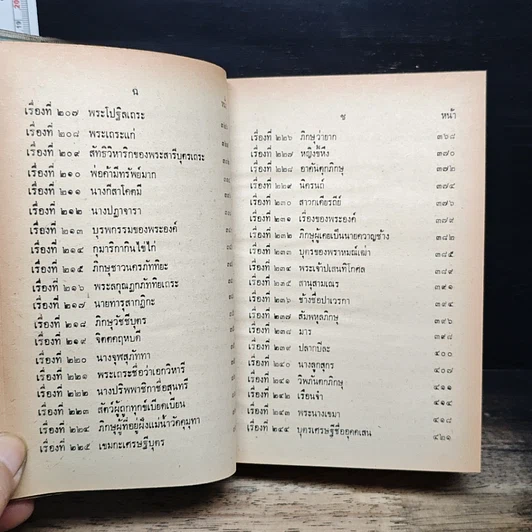 ฉ
เรื่องที่ ๒๐๗ พระโปฐิลเถระ
เรื่องที่ ๒๐๘ พระเถระแก่
เรื่องที่ ๒๐๙ สัทธิวิหาริกของพระสารีบุตรเถระ
เรื่องที่ ๒๑๐ พ่อค้ามีทรัพย์มาก
เรื่องที่ ๒๑๑ นางกีสาโคตมี
เรื่องที่ ๒๑๒ นางปฏาจารา
เรื่องที่ ๒๑๓ บุรพกรรมของพระองค์
เรื่องที่ ๒๑๔ กุมาริกากินไข่ไก่
เรื่องที่ ๒๑๕ ภิกษุชาวนครภัททิยะ
เรื่องที่ ๒๑๖ พระลกุณฏกภัททิยเถระ
เรื่องที่ ๒๑๗ นายทารุสากฏิกะ
เรื่องที่ ๒๑๘ ภิกษุวัชชีบุตร
เรื่องที่ ๒๑๙ จิตตคฤหบดี
เรื่องที่ ๒๒๐ นางจุฬสุภัททา
เรื่องที่ ๒๒๑ พระเถระชื่อว่าเอกวิหารี
เรื่องที่ ๒๒๒ นางปริพพาชิกาชื่อสุนทรี
เรื่องที่ ๒๒๓ สัตว์ผู้ถูกทุกข์เบียดเบียน
เรื่องที่ ๒๒๔ ภิกษุผู้ที่อยู่ฝั่งแม่น้ำวัคคุมุทา
เรื่องที่ ๒๒๕ เขมกะเศรษฐีบุตร
ช หน้า
เรื่องที่ ๒๒๖ ภิกษุว่ายาก ๓๖๘
เรื่องที่ ๒๒๗ หญิงขี้หึง ๓๗๐
เรื่องที่ ๒๒๘ อาคันตุกภิกษุ ๓๗๒
เรื่องที่ ๒๒๙ นิครนถ์ ๓๗๔
เรื่องที่ ๒๓๐ สาวกเดียรถีย์
เรื่องที่ ๒๓๑ เรื่องของพระองค์ ๓๗๙
เรื่องที่ ๒๓๒ ภิกษุผู้เคยเป็นนายควาญช้าง ๓๘๒
เรื่องที่ ๒๓๓ บุตรของพราหมณ์เฒ่า
เรื่องที่ ๒๓๔ พระเจ้าปเสนทิโกศล
เรื่องที่ ๒๓๕ สานุสามเณร
เรื่องที่ ๒๓๖ ช้างชื่อปาเวรกา
เรื่องที่ ๒๓๗ สัมพหุลภิกษุ
เรื่องที่ ๒๓๘ มาร
เรื่องที่ ๒๓๙
เรื่องที่ ๒๔๐ นางลูกสุกร
เรื่องที่ ๒๔๑ วิพภันตกภิกษุ
เรื่องที่ ๒๔๒ เรือนจำ
เรื่องที่ ๒๔๓ พระนางเขมา
เรื่องที่ ๒๔๔ บุตรเศรษฐีชื่ออุคคเสน